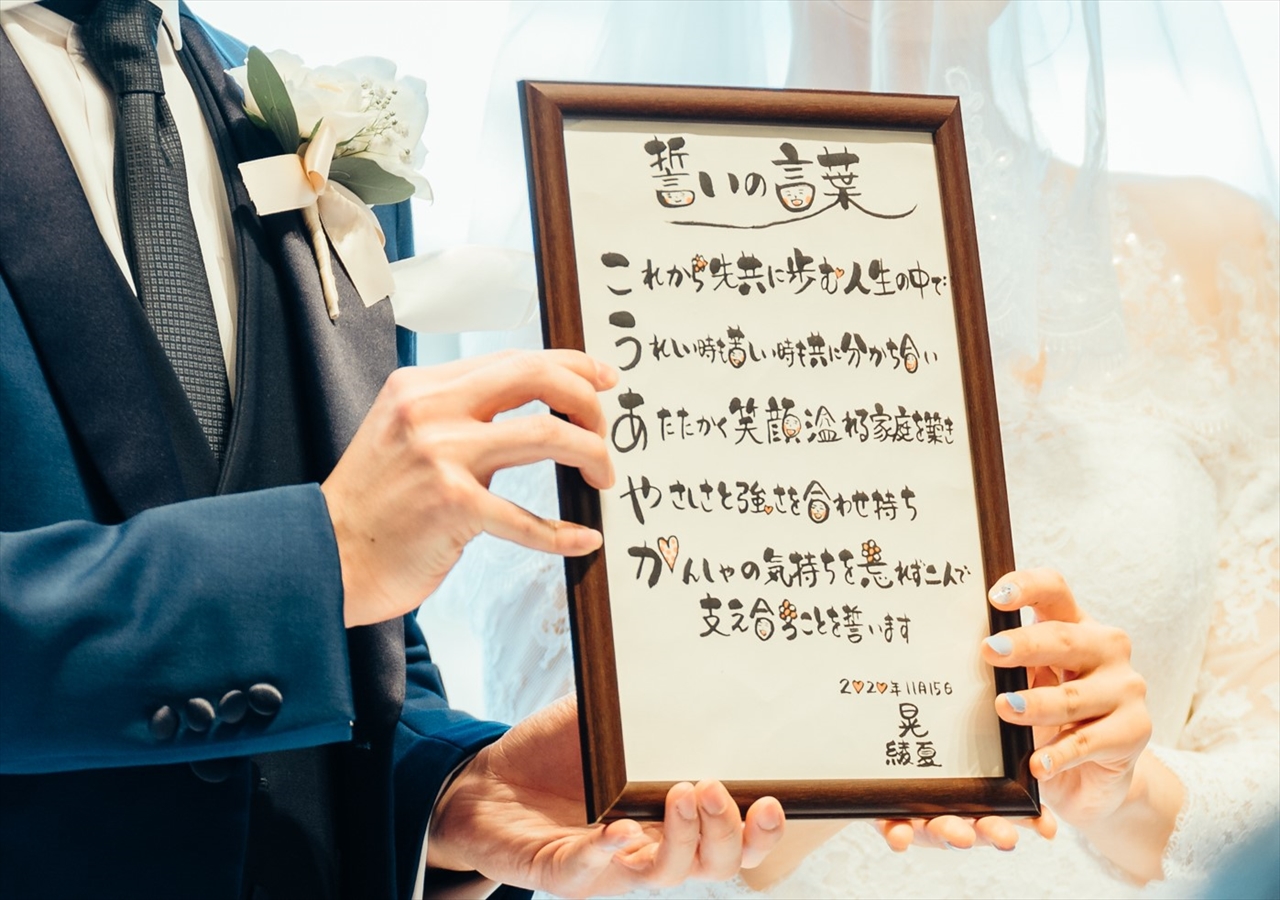 誓いの言葉
これから先共に歩む人生の中で
うれしい時も苦しい時も共に分かち合い
あたたかく笑顔溢れる家庭を築き
やさしさと強さを合わせ持ち
かんしゃの気持ちを忘れず二人で
支え合うことを誓います
2020年11月15日
晃
綾夏